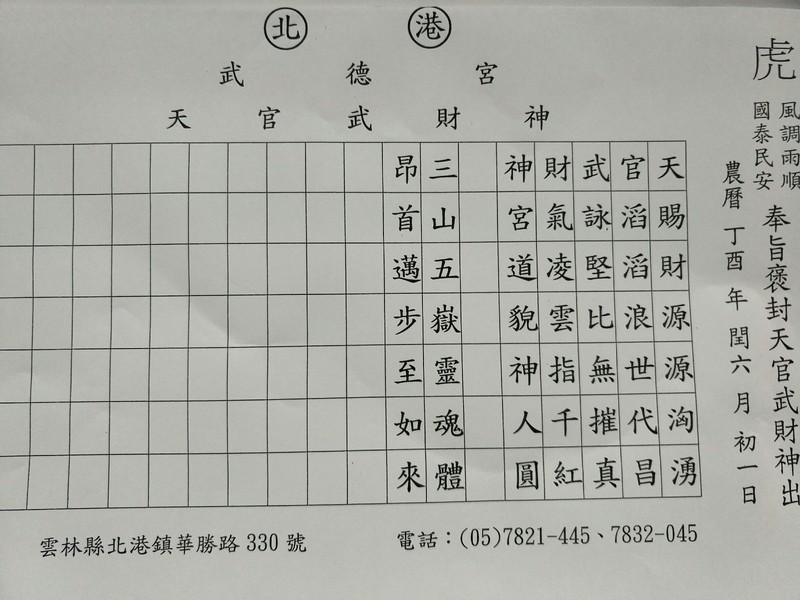 北港
武德宮
天官武財神
虎
風調雨順
國泰民安
奉旨褒封天官武財神出
農曆 丁酉 年 閏六 月 初一日
天賜財源源洶湧
官滔滔浪世代昌
武詠堅比無摧真
財氣凌雲指千紅
神宮道貌神人圓
三山五嶽靈魂體
昂首邁步至如來
雲林縣北港鎮華勝路 330 號
電話：(05)7821-445、7832-045